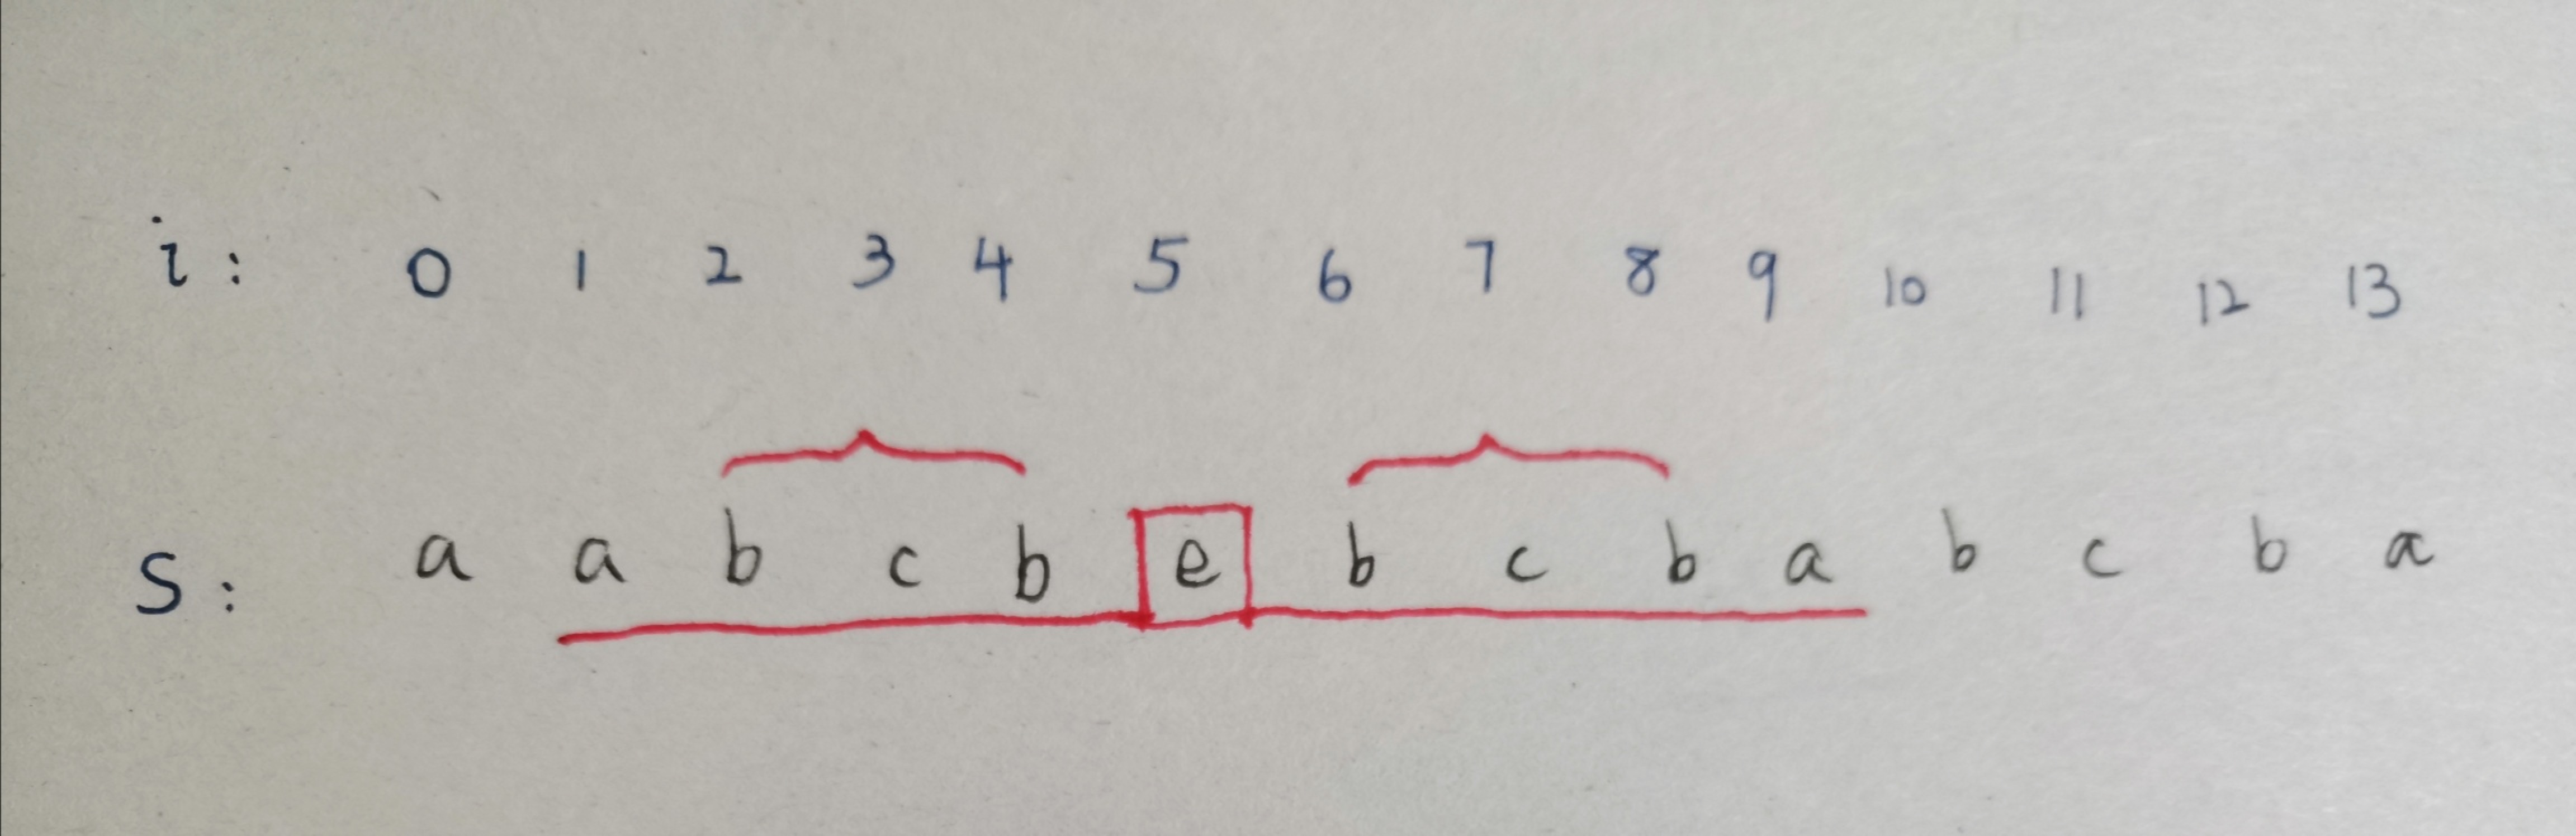 i: 0 1 2 3 4 5 6 7 8 9 10 11 12 13
S: a a b c b e b c b a b c b a